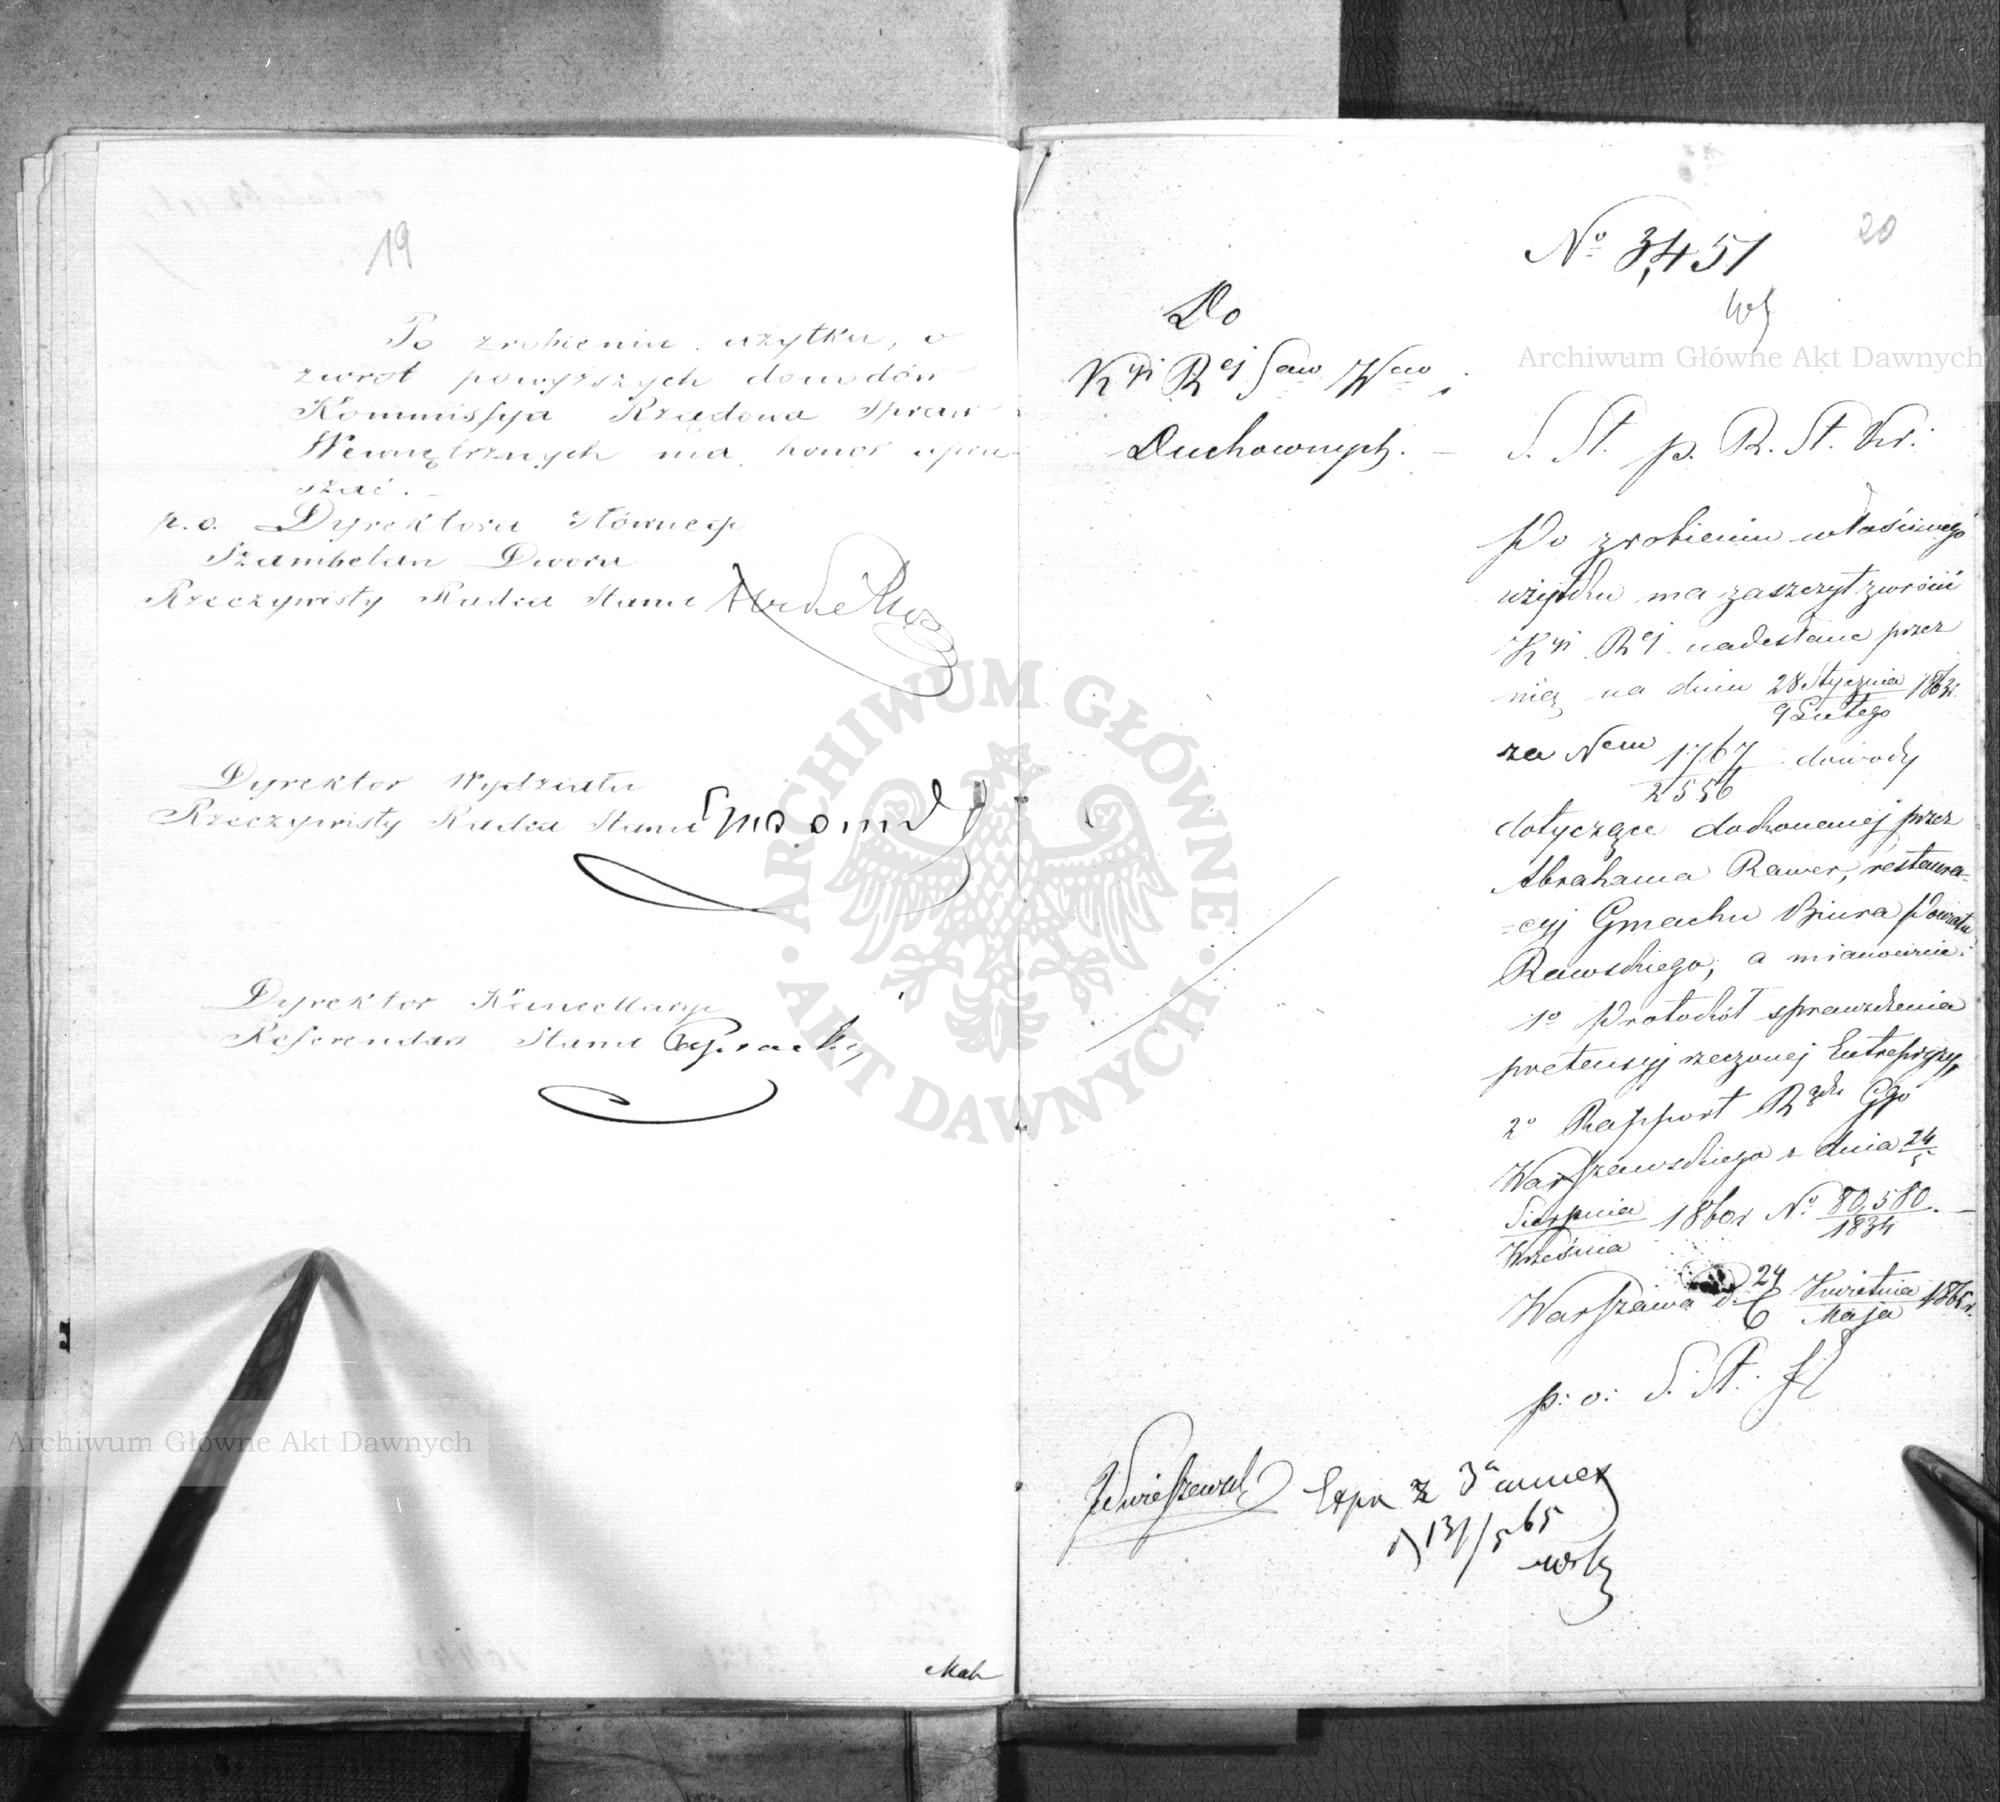 19
Po zrobieniu użytku, o
zwrot powyższych dowodów
Kommissya Rządowa Spraw
Wewnętrznych ma honor upra-
szać. –
p. o. Dyrektora Głównego
Szambelan Dworu
Rzeczywisty Radca Stanu
Dyrektor Wydziału
Rzeczywisty Radca Stanu
Dyrektor Kancellaryi
Referendarz Stanu
20
No 3,451
Do
Kyi Rej Spraw Wew i
Duchownych. –
S. St. p. R. St. Kr.
Po zrobieniu właściwego
użytku ma zaszczyt zwrócić
Kyi Rej nadesłane przez
nię na dniu 28 Stycznia / 9 Lutego 1863r.
za Nem 1767 / 2556 dowody
dotyczące dokonanej przez
Abrahama Rawer, restaura=
=cyj Gmachu Biura Powiatu
Rawskiego, a mianowicie:
1o Protokół sprawdzenia
pretensyj rzeczonej Entrepryzy,
2o Rapport Rządu Ggo
Warszawskiego z dnia 24 / 5
Sierpnia / Września 1860r No 80,580 / 1834. –
Warszawa d. 24 / 6 Kwietnia / Maja 1865r.
p: o: S. St.
Expr z 3a annex
d 13/5 65
Archiwum Główne Akt Dawnych
Archiwum Główne Akt Dawnych
ARCHIWUM GŁÓWNE · AKT DAWNYCH ·